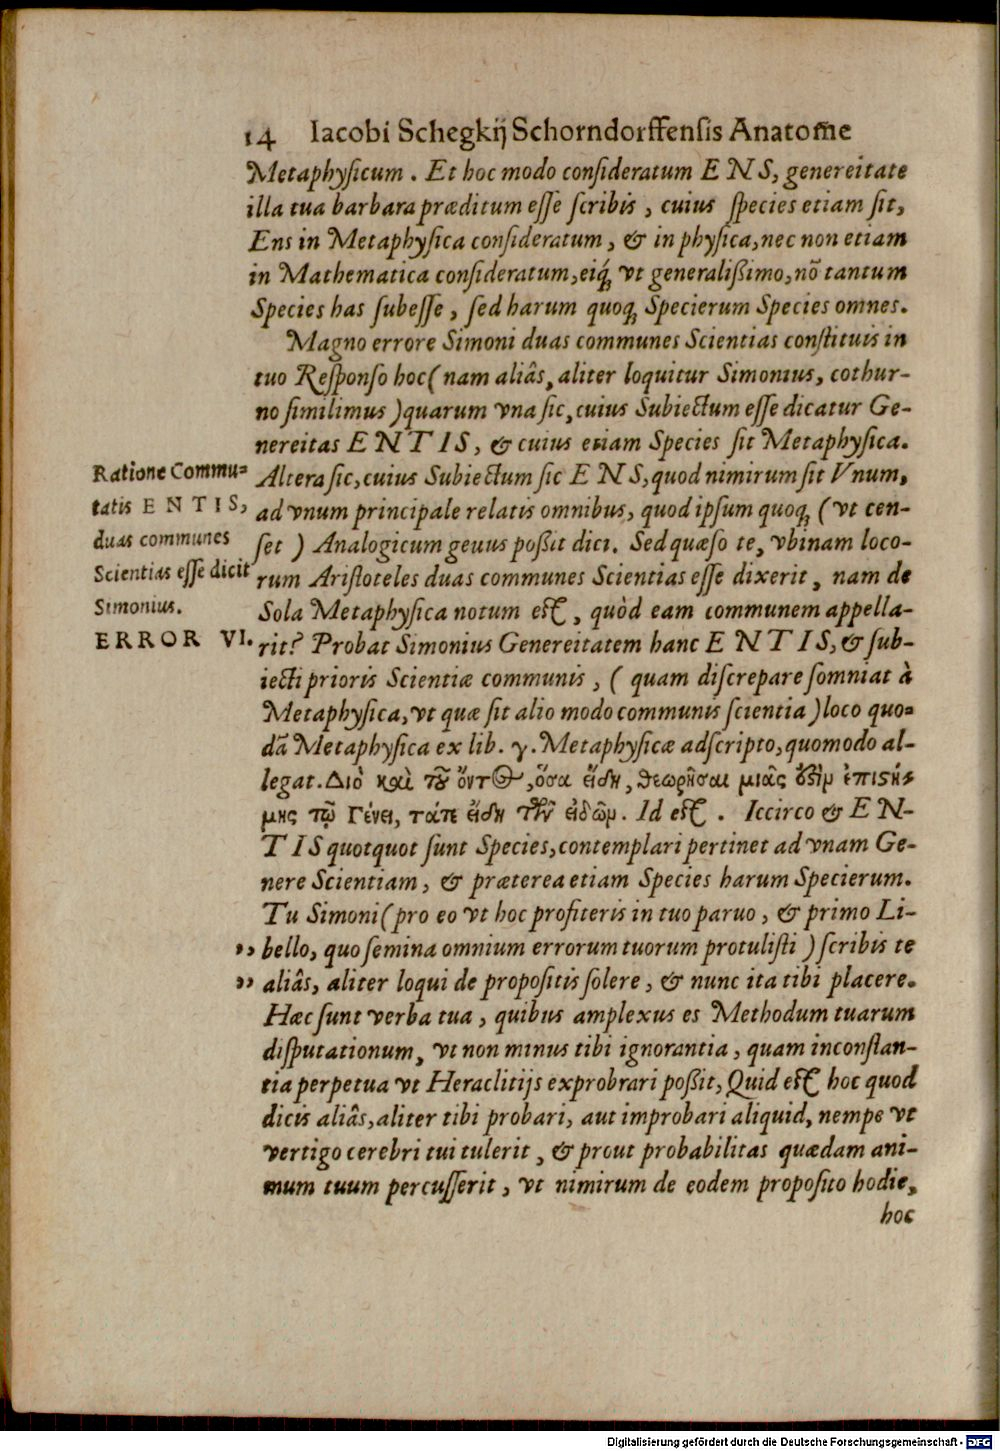 14 Iacobi Schegkij Schorndorffensis Anatome
Metaphysicum. Et hoc modo consideratum ENS, genereitate
illa tua barbara præditum esse scribis, cuius species etiam sit,
Ens in Metaphysica consideratum, & in physica, nec non etiam
in Mathematica consideratum, eiq́; vt generalißimo, nõ tantum
Species has subesse, sed harum quoq; Specierum Species omnes.
Magno errore Simoni duas communes Scientias constituis in
tuo Responso hoc (nam aliâs, aliter loquitur Simonius, cothur-
no similimus) quarum vna sic, cuius Subiectum esse dicatur Ge-
nereitas ENTIS, & cuius etiam Species sit Metaphysica.
Ratione Commu-
tatis ENTIS,
duas communes
Scientias esse dicit
Simonius.
ERROR VI.
Altera sic, cuius Subiectum sic ENS, quod nimirum sit Vnum,
ad vnum principale relatis omnibus, quod ipsum quoq; (vt cen-
set) Analogicum genus poßit dici. Sed quæso te, vbinam loco-
rum Aristoteles duas communes Scientias esse dixerit, nam de
Sola Metaphysica notum est, quòd eam communem appella-
rit? Probat Simonius Genereitatem hanc ENTIS, & sub-
iecti prioris Scientiæ communis, (quam discrepare somniat à
Metaphysica, vt quæ sit alio modo communis scientia) loco quo-
dã Metaphysica ex lib. γ. Metaphysicæ adscripto, quomodo al-
legat. Διὸ καὶ τοῦ ὄντος, ὅσα εἴδη, θεωρῆσαι μιᾶς ὅζιμ ἐπιστή-
μης τῷ Γένει, τάτε εἴδη τῶν εἰδῶμ. Id est. Iccirco & EN-
TIS quotquot sunt Species, contemplari pertinet ad vnam Ge-
nere Scientiam, & præterea etiam Species harum Specierum.
Tu Simoni (pro eo vt hoc profiteris in tuo paruo, & primo Li-
,, bello, quo semina omnium errorum tuorum protulisti) scribis te
,, aliâs, aliter loqui de propositis solere, & nunc ita tibi placere.
Hæc sunt verba tua, quibus amplexus es Methodum tuarum
disputationum, vt non minus tibi ignorantia, quam inconstan-
tia perpetua vt Heraclitijs exprobrari poßit, Quid est hoc quod
dicis aliâs, aliter tibi probari, aut improbari aliquid, nempe vt
vertigo cerebri tui tulerit, & prout probabilitas quædam ani-
mum tuum percusserit, vt nimirum de eodem proposito hodie,
hoc
Digitalisierung gefördert durch die Deutsche Forschungsgemeinschaft - DFG